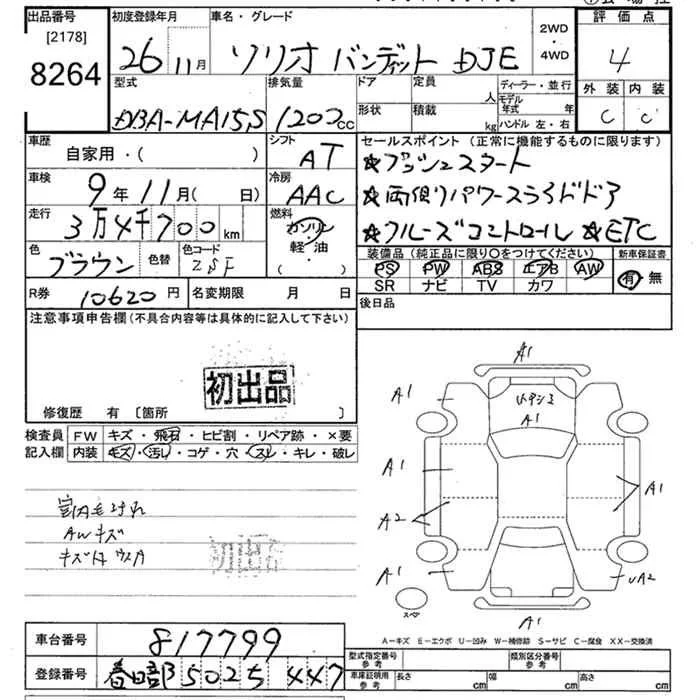 出品番号
[2178]
8264
初度登録年月
26 11月
車名・グレード
ソリオ バンディット DJE
2WD
・
4WD
評価点
4
外装 内装
C C
型式
DBA-MA15S
排気量
1200cc
ドア
形状
定員
人
積載
kg
ディーラー・並行
モデル年式 年
ハンドル 左・右
車歴
自家用・( )
シフト
AT
車検
9年11月( 日)
冷房
AAC
走行
3万4千700km
燃料
ガソリン
軽・油
・
色
ブラウン
色替
色コード
ZSF
セールスポイント(正常に機能するものに限ります)
★プッシュスタート
★両側パワースライドドア
★クルーズコントロール ★ETC
装備品(純正品に限り〇をつけてください)
PS PW ABS エアB AW
SR ナビ TV カワ
新車保証書
有・無
R券 10620円
名変期限 月 日
後日品
注意事項申告欄(不具合内容等は具体的に記入して下さい)
初出品
修復歴 有〔箇所 〕
検査員記入欄
FW キズ・飛石・ヒビ割・リペア跡・×要
内装 キズ・汚レ・コゲ・穴・スレ・キレ・破レ
AWキズ
初出品
A1
A1
A1
A1
A1
A1
A2
A1
UA2
A1
スペア
A－キズ E－エクボ U－凹み W－補修跡 S－サビ C－腐食 XX－交換済
車台番号 817799
登録番号 春日部 502 5 447
型式指定番号
参考
類別区分番号
参考
車庫証明用
参考
長さ cm
幅 cm
高さ cm